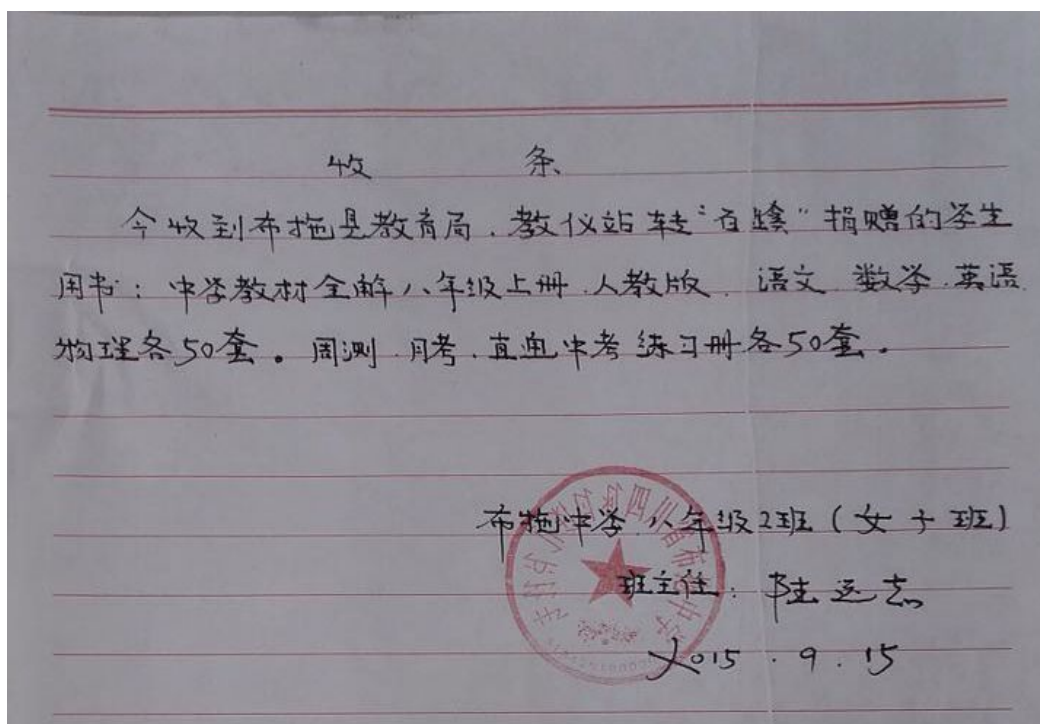 收 条
今收到布拖县教育局、教仪站转"百蟻"捐赠的学生
用书：中学教材全解八年级上册.人教版. 语文 数学.英语
物理各50套。周测.月考.直通中考练习册各50套。
布拖中学八年级2班(女子班)
班主任: 陆远志
2015.9.15